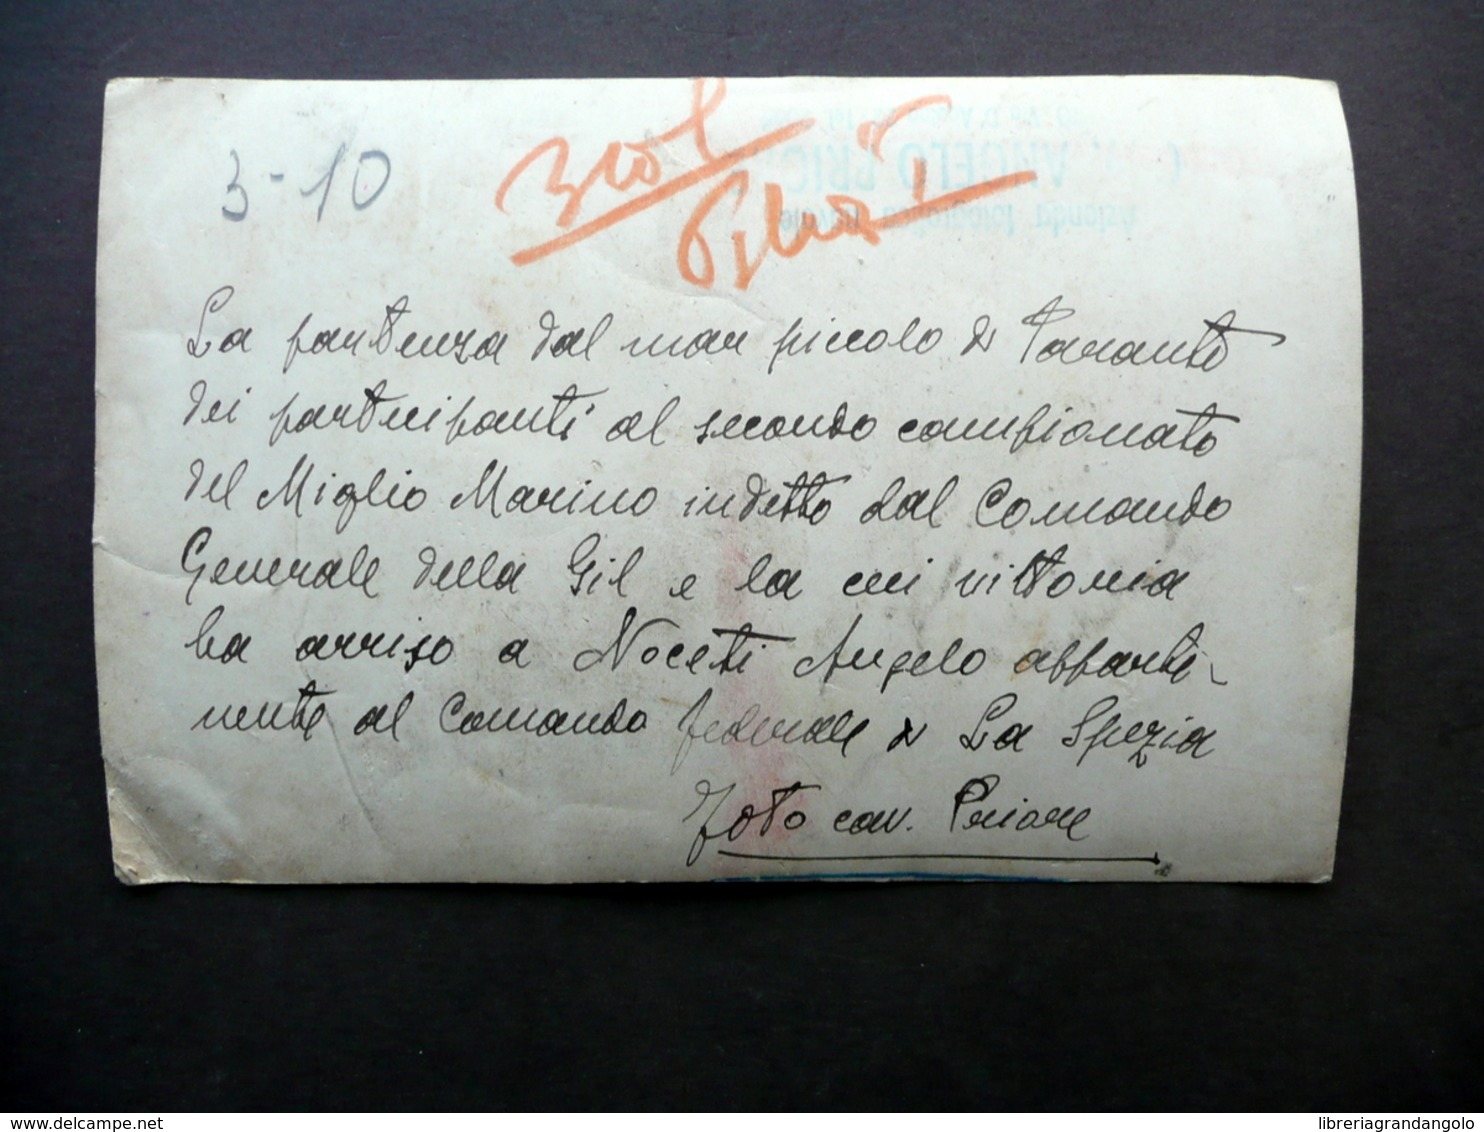 3-10
La partenza dal mar piccolo di Taranto
dei partecipanti al secondo campionato
del Miglio Marino indetto dal Comando
Generale della Gil e la cui vittoria
ha arriso a Noceti Angelo apparte-
nente al Comando federale di La Spezia
Foto cav. Priore
Azienda fotografica
ANGELO PRIO
delcampe.net
libreriagrandangolo